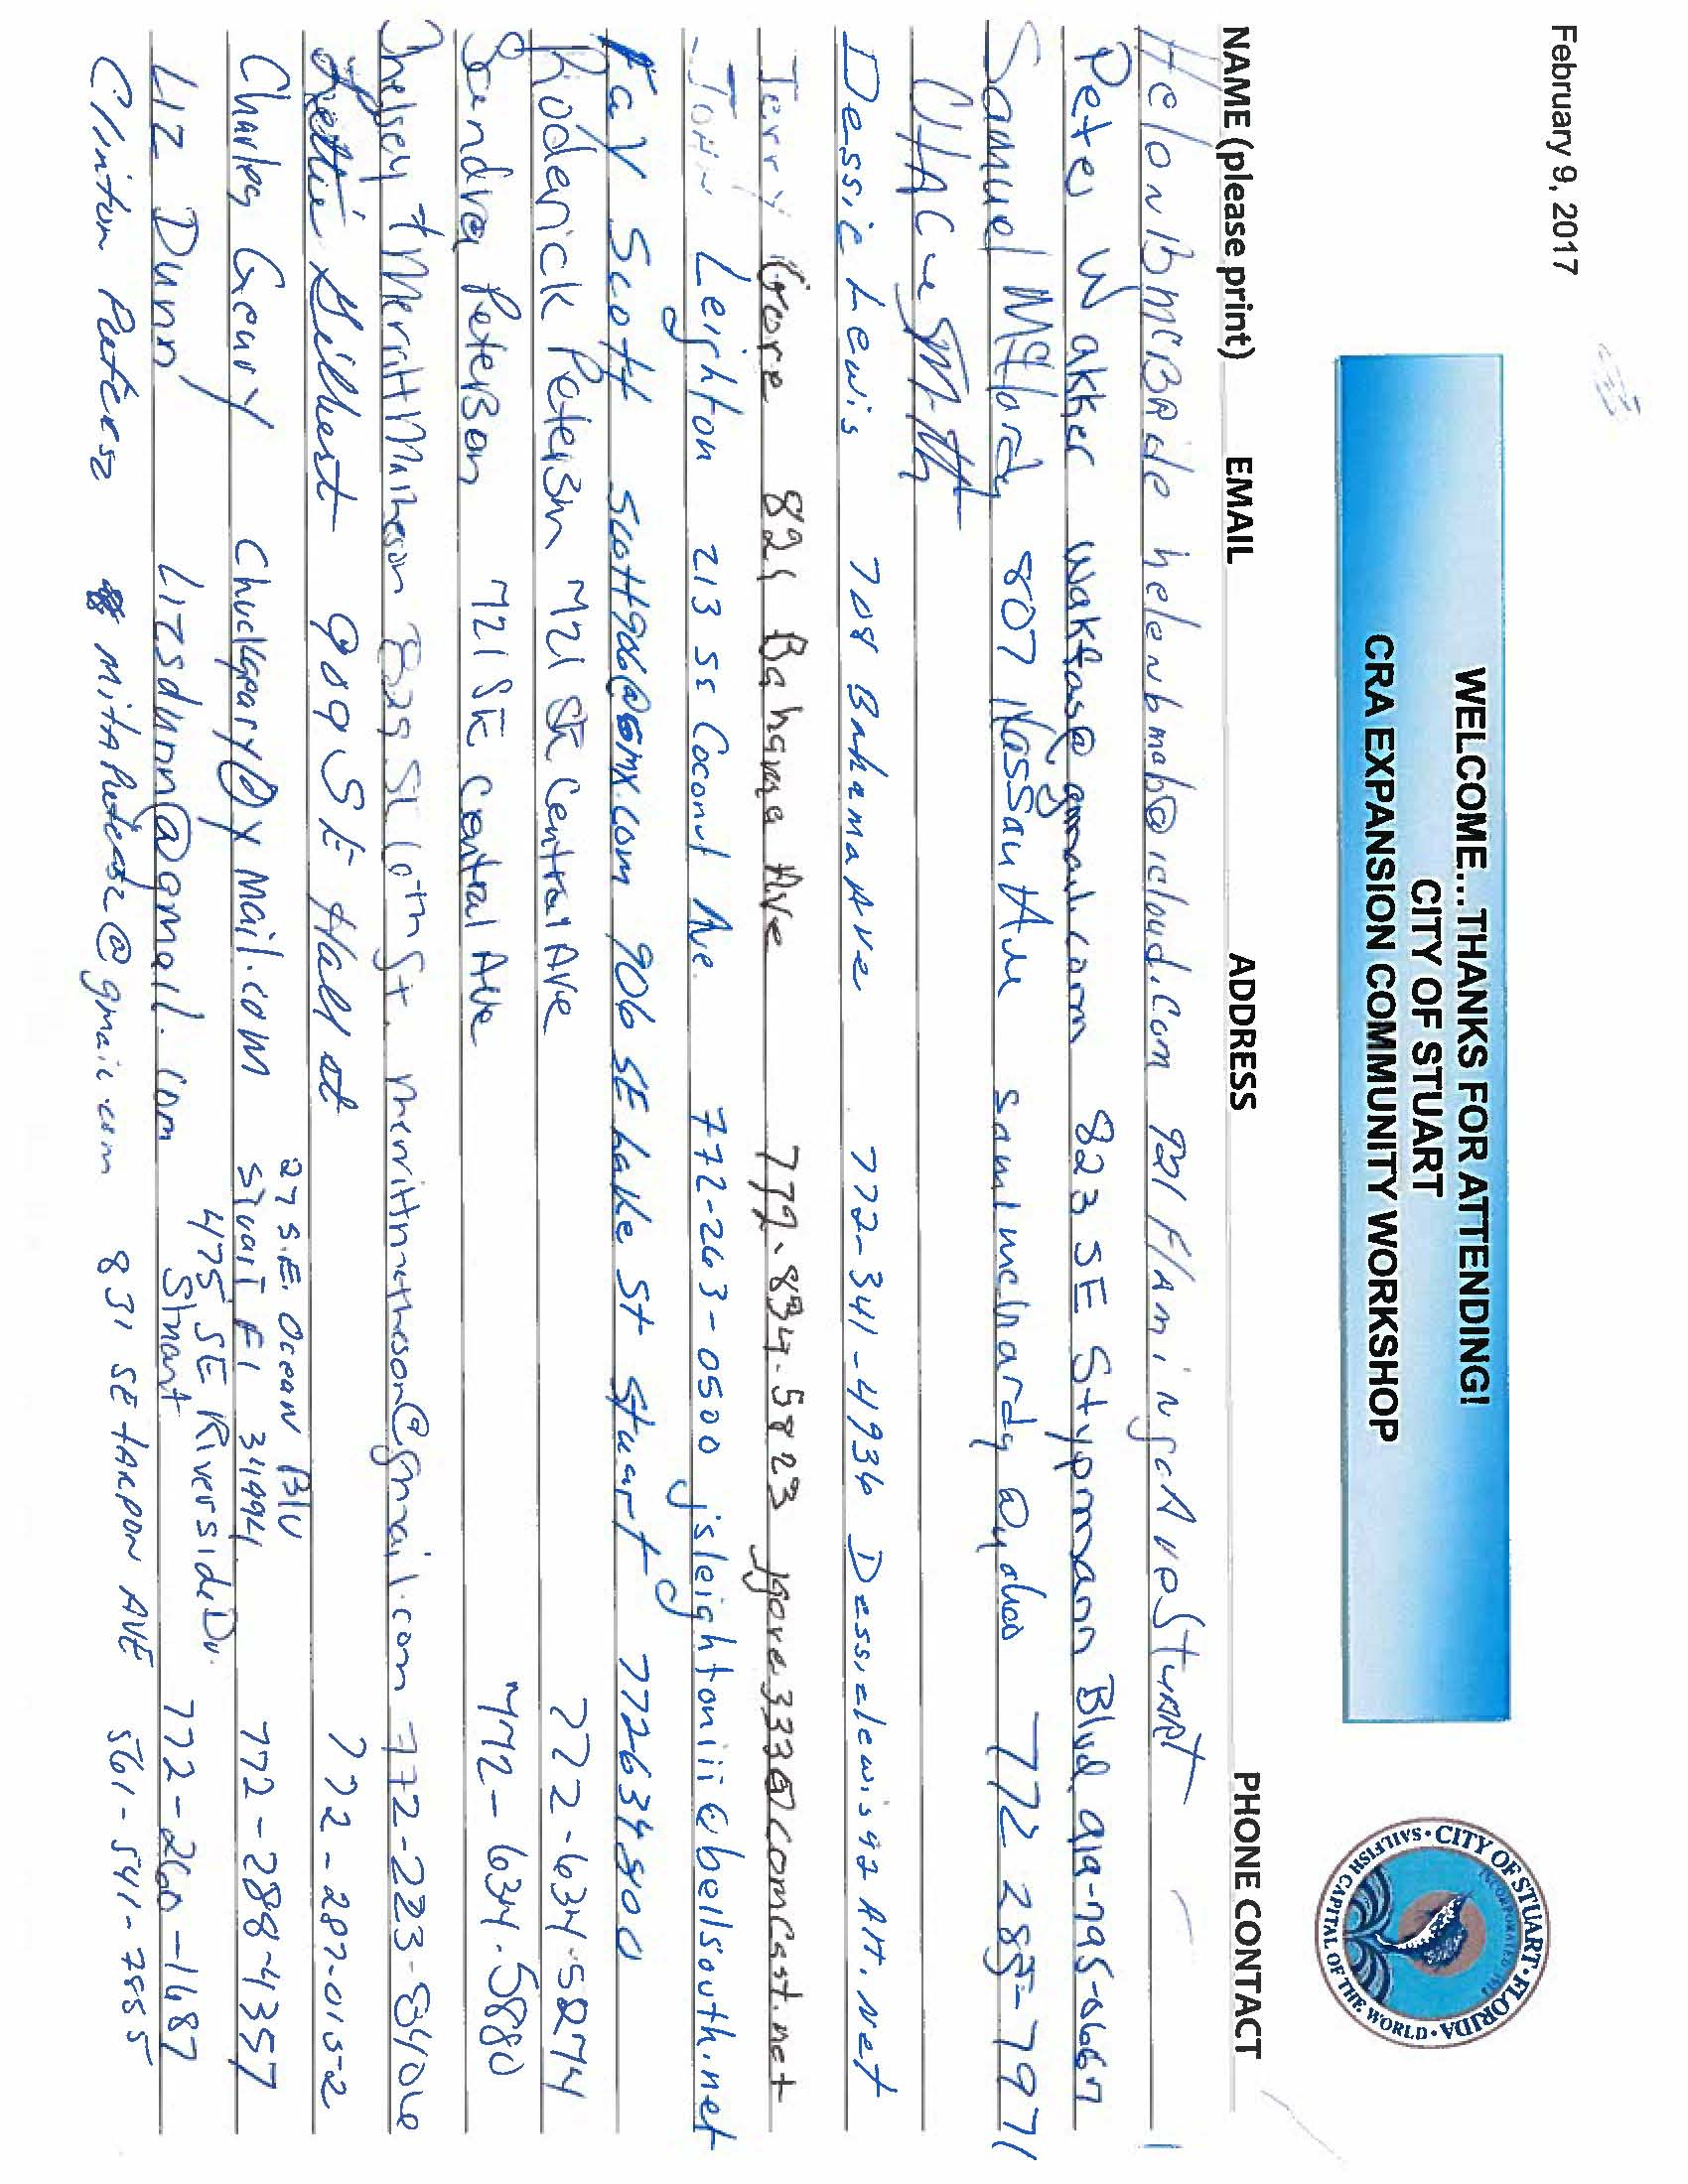 February 9, 2017
WELCOME...THANKS FOR ATTENDING!
CITY OF STUART
CRA EXPANSION COMMUNITY WORKSHOP
CITY OF STUART • FLORIDA • SAILFISH CAPITAL OF THE WORLD •
INCORPORATED
NAME (please print) EMAIL ADDRESS PHONE CONTACT
Helon B McBride helenbmcb@icloud.com 921 Flamingo Ave Stuart
Pete Wakker Wakfas@gmail.com 823 SE Stypmann Blvd 919-795-0667
Samuel 807 Nassau Ave 772 285-7971
Smith
Dessie Lewis 708 Bahama Ave 772-341-4936 Dessielewis42 Att.net
Jerry Gore 821 Bahama Ave 772-834-5823 jgore333@comcast.net
John Leighton 213 SE Coconut Ave. 772-263-0500 jsleightoniii@bellsouth.net
Fay Scott Scott906@GMX.com 906 SE Lake St Stuart 7726348400
Roderick Peterson 721 SE Central Ave 772-634-5874
Sendra Peterson 721 SE Central Ave 772-634-5880
Chelsey + Merritt Matheson 829 SE 10th St. merrittmatheson@gmail.com 772-223-8406
Gilbert 909 SE Hall st 772-287-0152
Charles Geary Chuckgeary@ymail.com 27 S.E. Ocean Blv 772-288-4357
Stuart Fl 34994
Liz Dunn Lizsdunn@gmail.com 475 SE Riverside Dr. 772-260-1687
Stuart
Clinton 831 SE TARPON AVE 561-541-7855